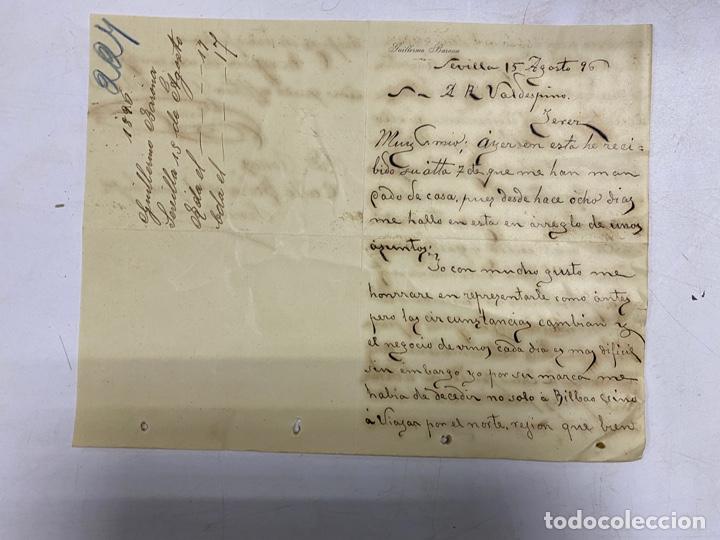 224
1896
Guillermo Barona
Sevilla 15 de Agosto
Rda el 17
Ctda el 17
Guillermo Barona
Sevilla 15 Agosto 96
Sr A R Valdespino.
Jerez
Muy Sr mio; áyer en esta he reci-
bido su atta 7 de que me han man
dado de casa, pues desde hace ocho dias
me hallo en esta en arreglo de unos
ásuntos;
Yo con mucho gusto me
honrrare en representarle como ántes
pero las circunstancias cambian y
el negocio de vinos cada dia es mas dificil
sin embargo yo por su marca me
habia de decedir no solo á Bilbao sino
á Viajar por el norte, rejion que bien
todocoleccion
todocoleccion.net